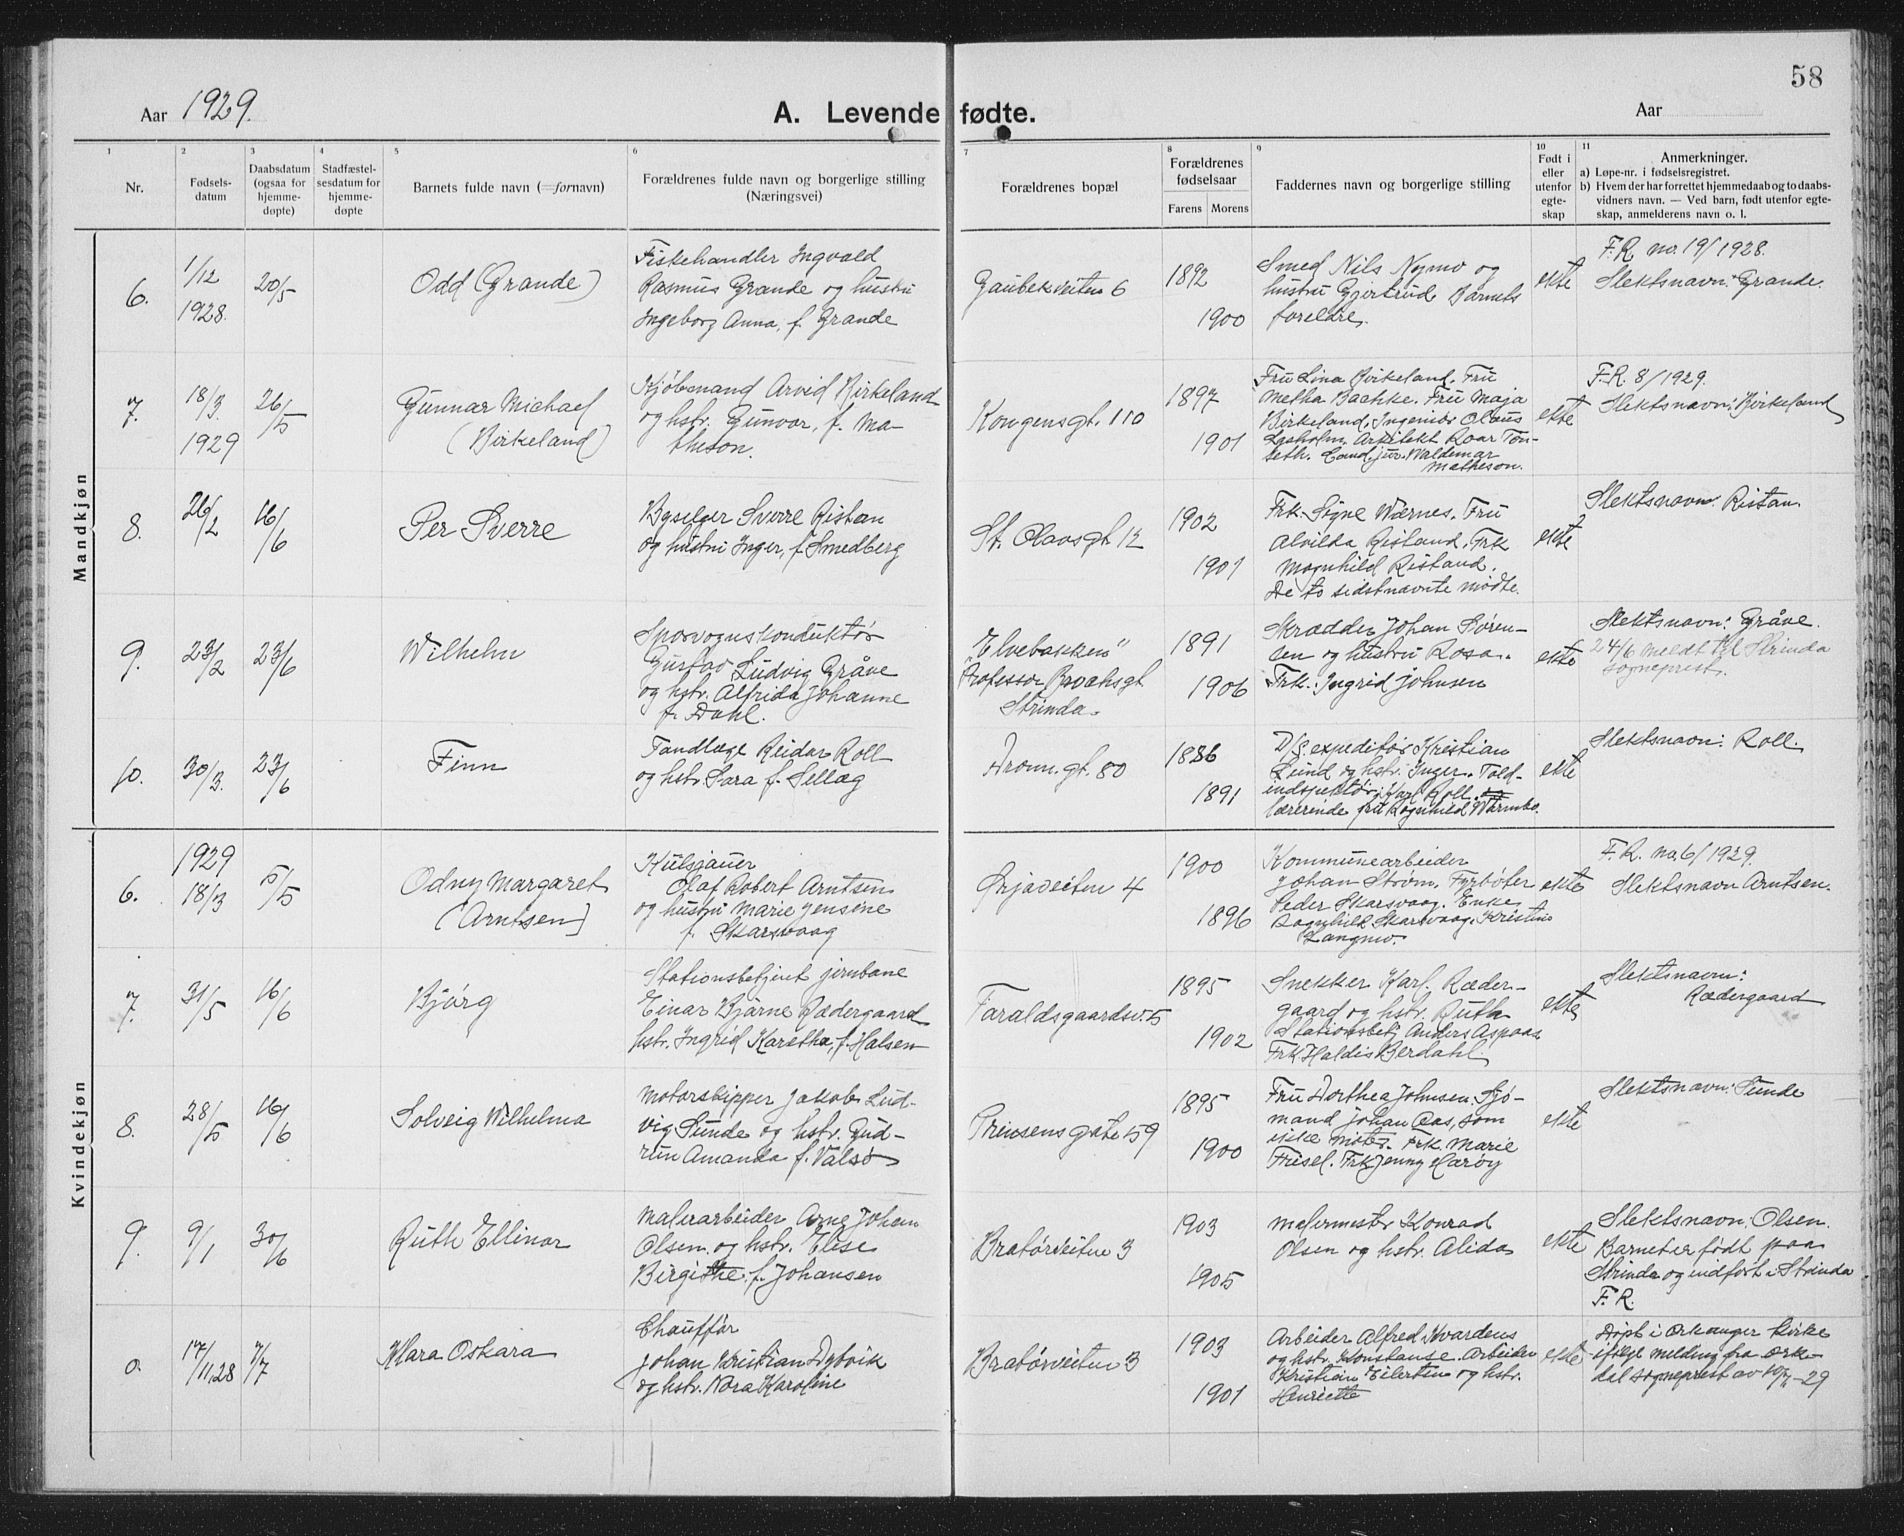 58
Aar 1929.
A. Levende fødte.
Aar
1 2 3 4 5 6 7 8 9 10 11
Nr.
Fødsels-
datum
Daabsdatum
(ogsaa for
hjemme-
døpte)
Stadfæstel-
sesdatum for
hjemme-
døpte
Barnets fulde navn (=fornavn)
Forældrenes fulde navn og borgerlige stilling
(Næringsvei)
Forældrenes bopæl
Forældrenes
fødselsaar
Farens Morens
Faddernes navn og borgerlig stilling
Født i
eller
utenfor
egte-
skap
Anmerkninger.
a) Løpe-nr. i fødselsregistret.
b) Hvem der har forrettet hjemmedaab og to daabs-
vidners navn. — Ved barn, født utenfor egte-
skap, anmelderens navn o. l.
Mandkjøn
6.
1/12
1928.
20/5
Odd (Grande)
Fiskehandler Ingvald
Rasmus Grande og hustru
Ingeborg Anna, f. Grande
Gaubekveiten 6
1892
1900
Smed Nils Nymo og
hustru Gjertrud. Barnets
foreldre.
ekte
F.R no. 19/1928.
Slektsnavn: Grande.
7.
18/3
1929
26/5
Gunnar Michael
(Birkeland)
Kjøbmand Arvid Birkeland
og hstr. Gunvor, f. Ma-
theson.
Kongensgt. 110
1897
1901
Fru Lina Birkeland. Fru
Metha Bachke. Fru Maja
Birkeland. Ingeniør Claus
Arkitekt Roar Tøn-
seth. Cand. jur. Waldemar
Matheson.
ekte
F.R. 8/1929.
Slektsnavn: Birkeland
8.
26/2
16/6
Per Sverre
Byselger Sverre Ristan
og hustru Inger, f. Smedberg
St. Olavsgt 12
1902
1901
Frk. Signe Wærnes. Fru
Alvilda Ristand. Frk
Magnhild Ristand.
De to sidstnævnte møtte.
ekte
Slektsnavn: Ristan.
9.
23/2
23/6
Wilhelm
Sporvognskonduktør
Gustav Ludvig Gråve
og hstr. Alfrida Johanne
f. Dahl.
"Elvebakken"
Professor Brochsgt
Strinda.
1891
1906
Skrædder Johan Søren-
sen og hustru Rosa.
Frk. Ingrid Johnsen
ekte
Slektsnavn: Gråve.
24/6 meldt til Strinda
sogneprest.
10.
30/3.
23/6
Finn
Tandlæge Reidar Roll
og hstr. Sara f. Sellæg
Dronn.gt. 80
1886
1891
D/S. expeditør Kristian
Lund og hstr. Inger. Told-
indspektør Karl Roll. og
lærerinde frk Ragnhild Warmbo.
ekte
Slektsnavn: Roll.
Kvindekjøn
6.
1929
18/3
5/5
Odny Margaret
[Arntsen]
Kulsjauer
Olaf Robert Arntsen
og hustru Marie Jensine
f. Skarsvaag
Ørjaveiten 4
1900
1896
Kommunearbeider
Johan Strøm. Fyrbøter
Peder Skarsvaag. Enke
Ragnhild Skarsvaag. Kristine
Langmo.
ekte
F.R. no. 6/1929.
Slektsnavn Arntsen.
7.
31/5
16/6
Bjørg
Stationsbetjent jernbane
Einar Bjarne Rædergaard
hstr. Ingrid Karetha, f. Halsen
Taraldsgaardsv. 5
1895
1902
Snekker Karl Ræder-
gaard og hstr. Ruth
Stationsbetj. Anders Aspaas
Frk Haldis Berdahl.
ekte
Slektsnavn:
Rædergaard
8.
28/5
16/6
Solveig Wilhelma
Motorskipper Jakob Lud-
vig Sunde og hstr. Gud-
run Amanda f. Valsø
Prinsensgate 59
1895
1900
Fru Dorthea Johnsen. Sjø-
mand Johan Aas, som
ikke møter. Frk. Marie
Frisel. Frk Jenny Harøy
ekte
Slektsnavn: Sunde
9.
9/1
30/6
Ruth Ellinor
Malerarbeider Arne Johan
Olsen og hstr. Elise
Birgithe, f. Johansen
Bratørveiten 3
1903
1905
Malermester Konrad
Olsen og hstr. Alida
ekte
Slektsnavn: Olsen.
Barnet er født paa
Strinda og indført i Strinda
F.R.
0.
17/11,28
7/7
Klara Oskara
Chauffør
Johan Kristian Dybvik
og hstr. Nora Karoline
Bratørveiten 3
1903
1901
Arbeider Alfred Kvardens
og hstr. Konstanse. Arbeider
Kristian Eilertsen og hstr.
Henriette
ekte
Døpt i Orkanger kirke
ifølge melding fra Ork-
dal sogneprest av 10/7-29